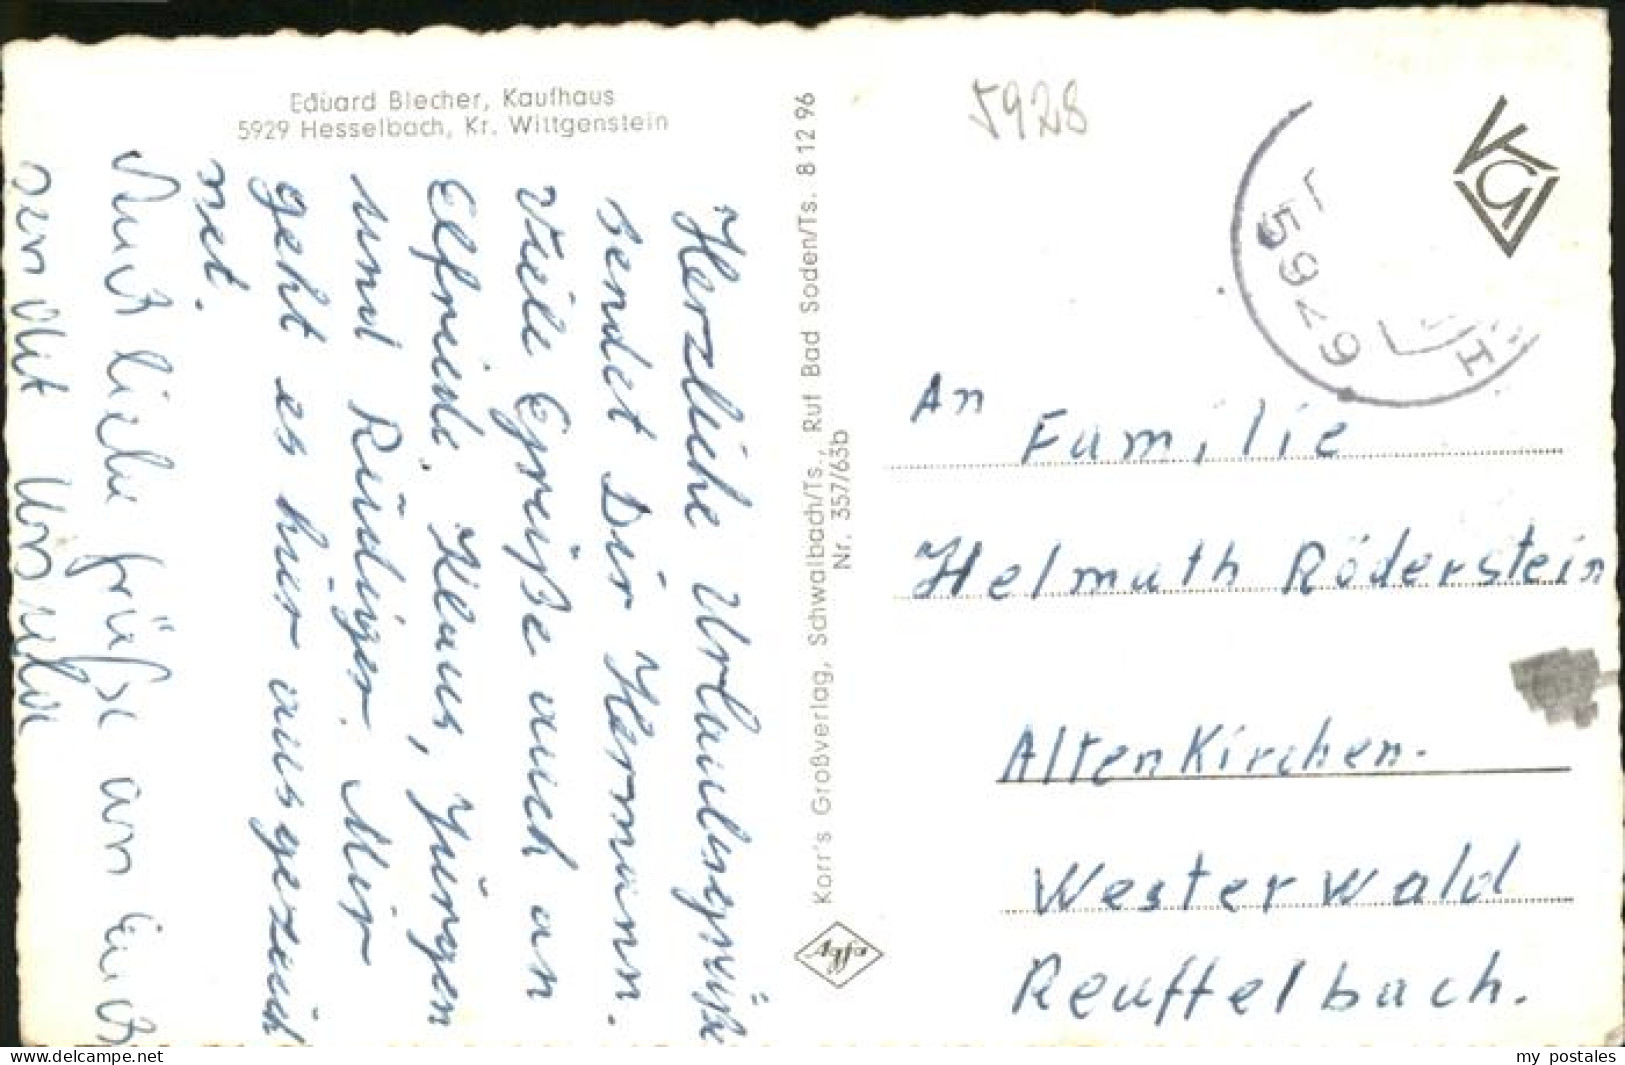 Eduard Blecher, Kaufhaus
5929 Hesselbach, Kr. Wittgenstein
Herzliche Urlaubsgrüße
sendet Dir Hermann.
Viele Grüße auch an
Elfriede, Klaus, Jürgen
und Rüdiger. Mir
geht es hier ausgezeich
net.
Auch liebe Grüße an Euch
von Ursula
Karr's Großverlag, Schwalbach/Ts., Ruf Bad Soden/Ts. 8 12 96
Nr. 357/63b
5928
5929
H
An
Familie
Helmuth Röderstein
Altenkirchen.
Westerwald
Reuffelbach.
my postales
www.delcampe.net